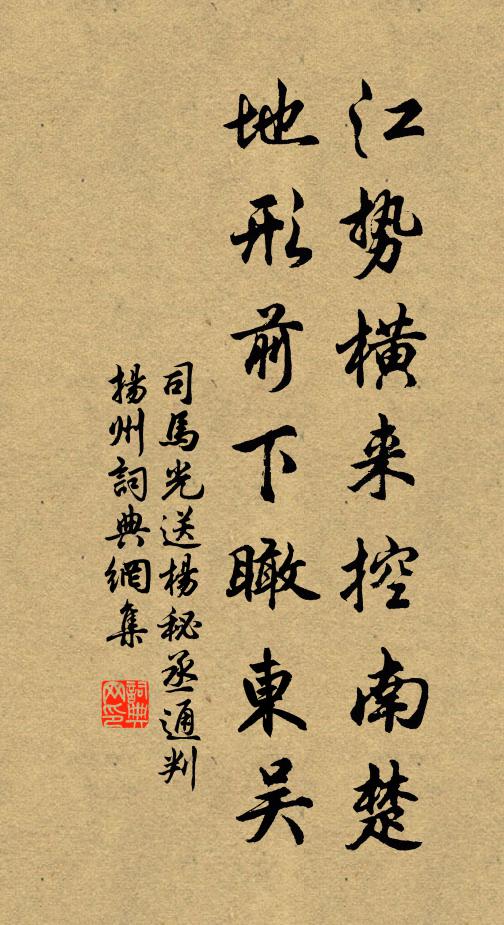 江势橫来控南楚
地形前下瞰東吴
司馬光送楊秘丞通判
揚州詞典網集
詞典
网印